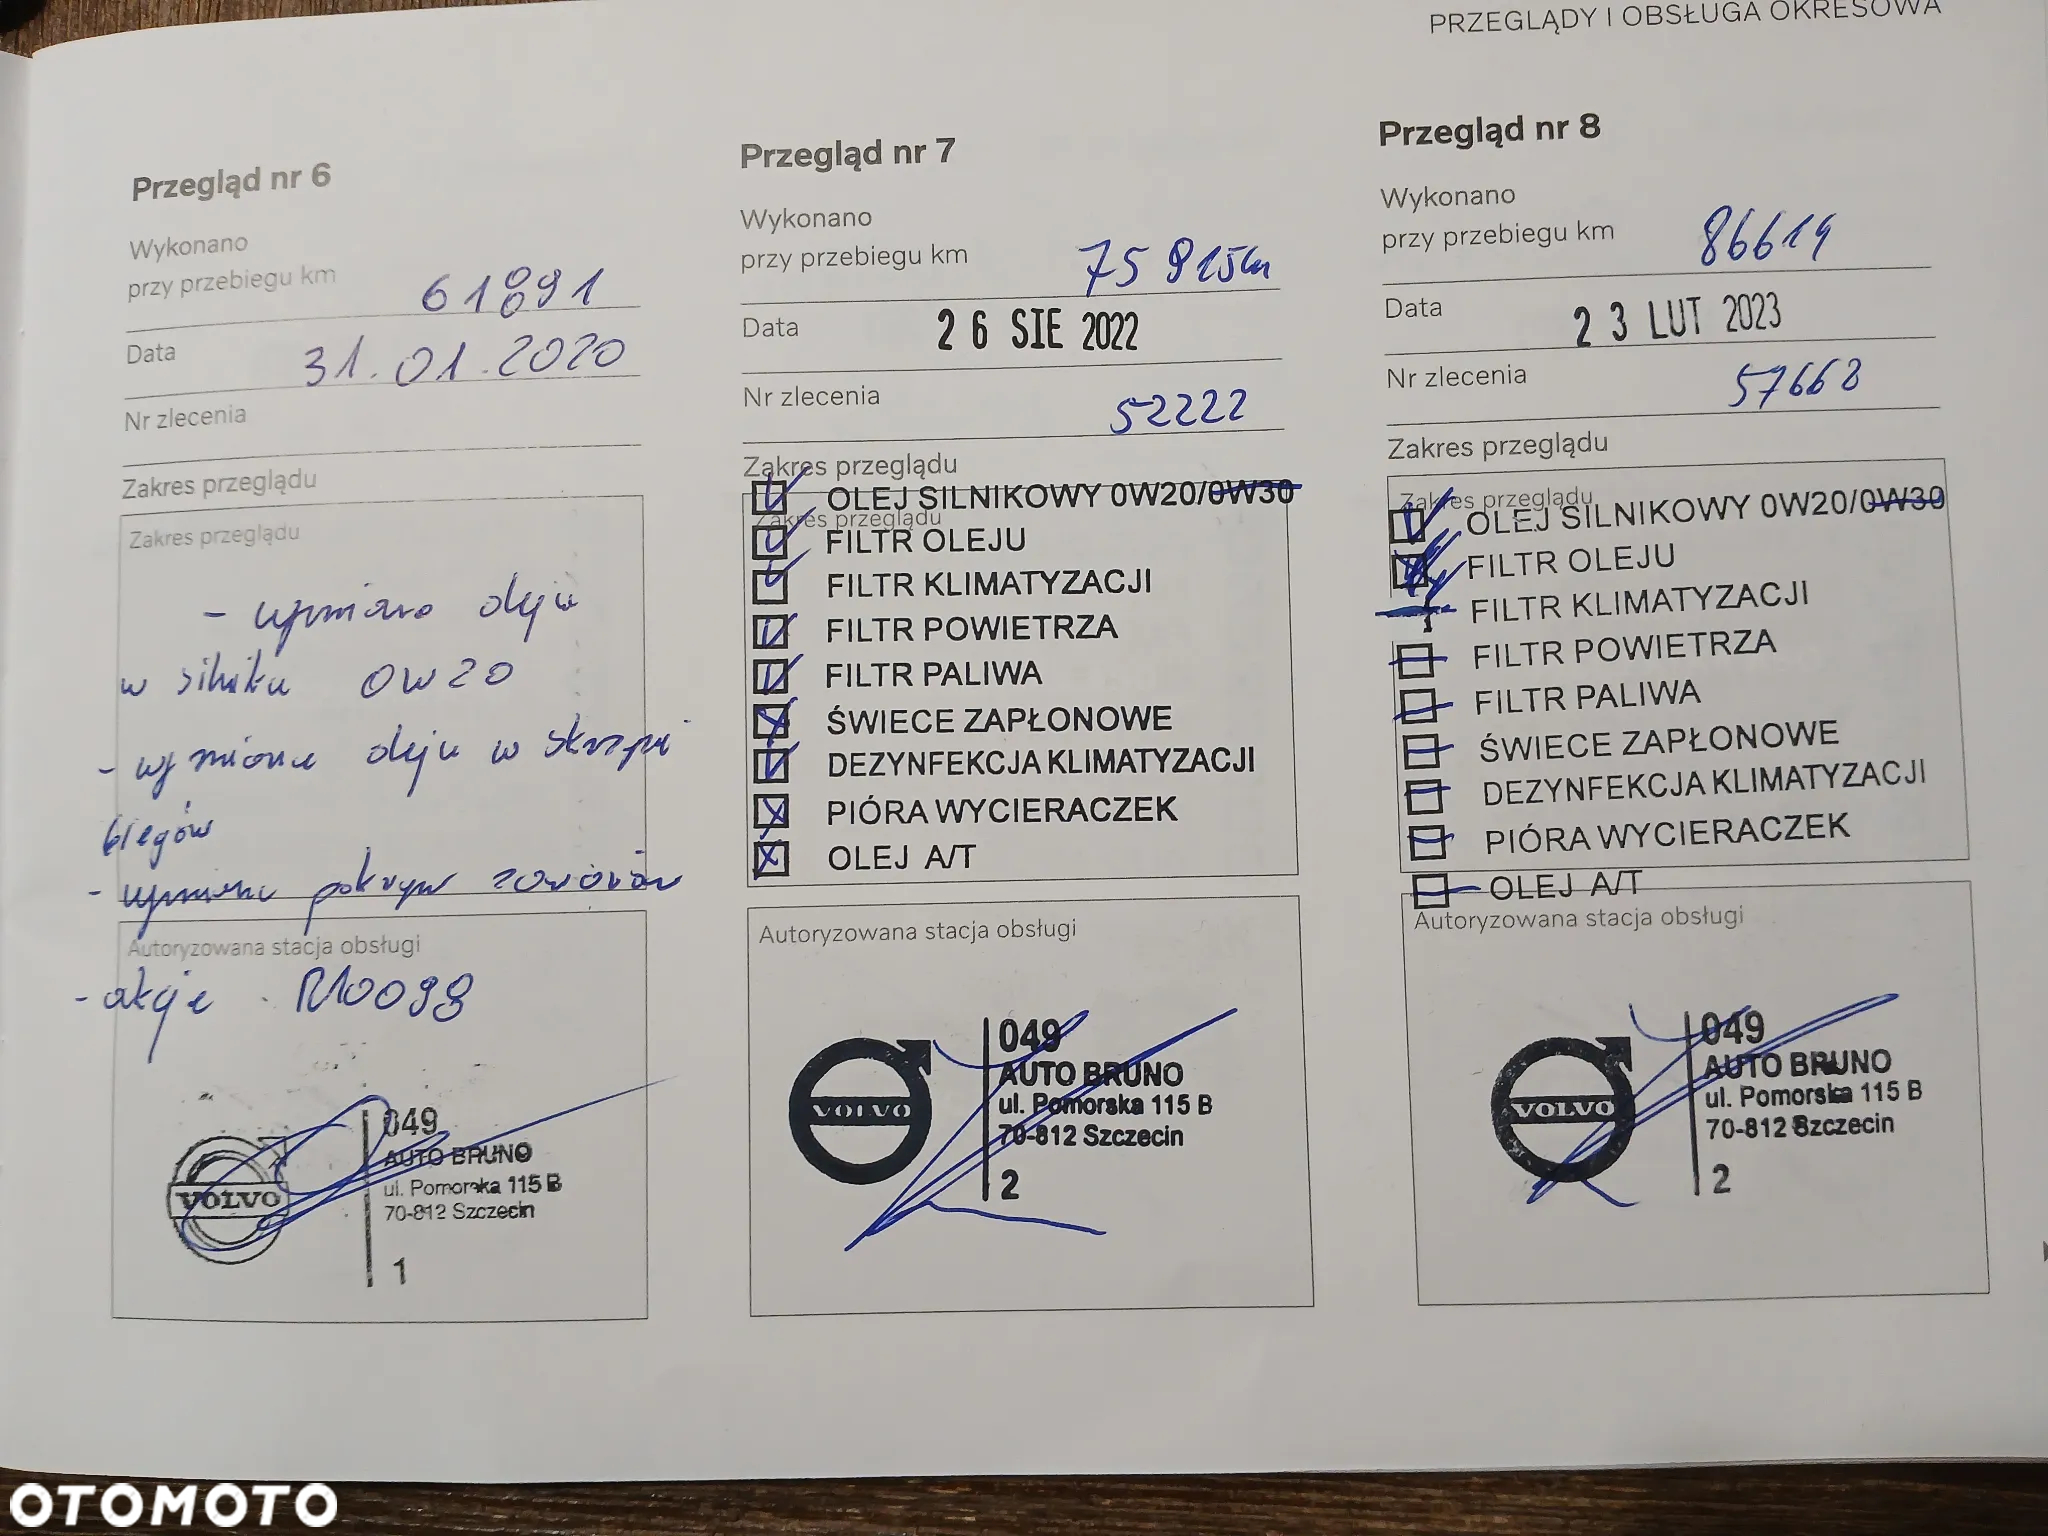 PRZEGLĄDY I OBSŁUGA OKRESOWA
Przegląd nr 6
Wykonano
przy przebiegu km 61891
Data 31.01.2020
Nr zlecenia
Zakres przeglądu
Zakres przeglądu
- wymiana oleju
w silniku 0W20
- wymiana oleju w skrzyni
biegów
- wymiana pokryw zaworów
Autoryzowana stacja obsługi
- akcje R10098
VOLVO
049
AUTO BRUNO
ul. Pomorska 115 B
70-812 Szczecin
1
Przegląd nr 7
Wykonano
przy przebiegu km 75 915km
Data 26 SIE 2022
Nr zlecenia 52222
Zakres przeglądu
OLEJ SILNIKOWY 0W20/0W30
Zakres przeglądu
FILTR OLEJU
FILTR KLIMATYZACJI
FILTR POWIETRZA
FILTR PALIWA
ŚWIECE ZAPŁONOWE
DEZYNFEKCJA KLIMATYZACJI
PIÓRA WYCIERACZEK
OLEJ A/T
Autoryzowana stacja obsługi
VOLVO
049
AUTO BRUNO
ul. Pomorska 115 B
70-812 Szczecin
2
Przegląd nr 8
Wykonano
przy przebiegu km 86619
Data 23 LUT 2023
Nr zlecenia 57668
Zakres przeglądu
Zakres przeglądu
OLEJ SILNIKOWY 0W20/0W30
FILTR OLEJU
FILTR KLIMATYZACJI
FILTR POWIETRZA
FILTR PALIWA
ŚWIECE ZAPŁONOWE
DEZYNFEKCJA KLIMATYZACJI
PIÓRA WYCIERACZEK
OLEJ A/T
Autoryzowana stacja obsługi
VOLVO
049
AUTO BRUNO
ul. Pomorska 115 B
70-812 Szczecin
2
OTOMOTO